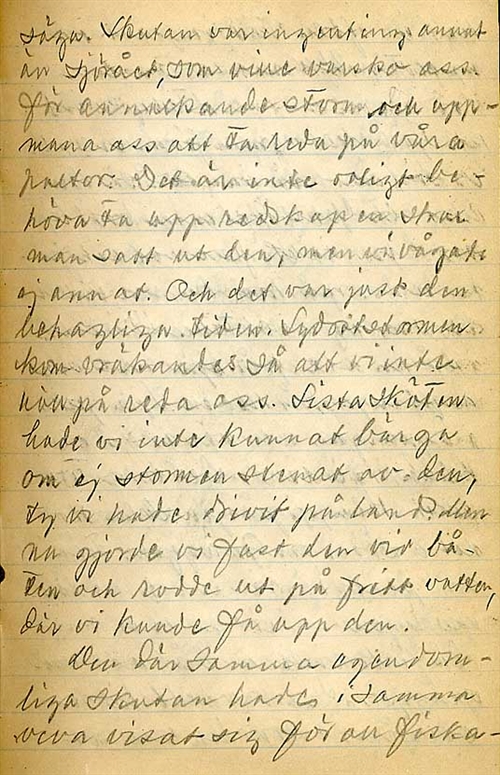 säga. Skutan var ingenting annat
än sjörået, som ville varsko oss
för annalkande storm, och upp-
mana oss att ta reda på våra
pattor. Det är inte roligt be-
höva ta upp redskapen strax
man satt ut den, men vi vågade
ej annat. Och det var just den
behagliga tiden. Sydoststormen
kom vräkandes så att vi inte
höll på reda oss. Sista sköten
hade vi inte kunnat bärga
om ej stormen slitit av den,
ty vi hade drivit på land. Men
nu gjorde vi fast den vid bå-
ten och rodde ut på fritt vatten,
där vi kunde få upp den.
Den där samma egendom-
liga skutan hade i samma
veva visat sig för en fiska-